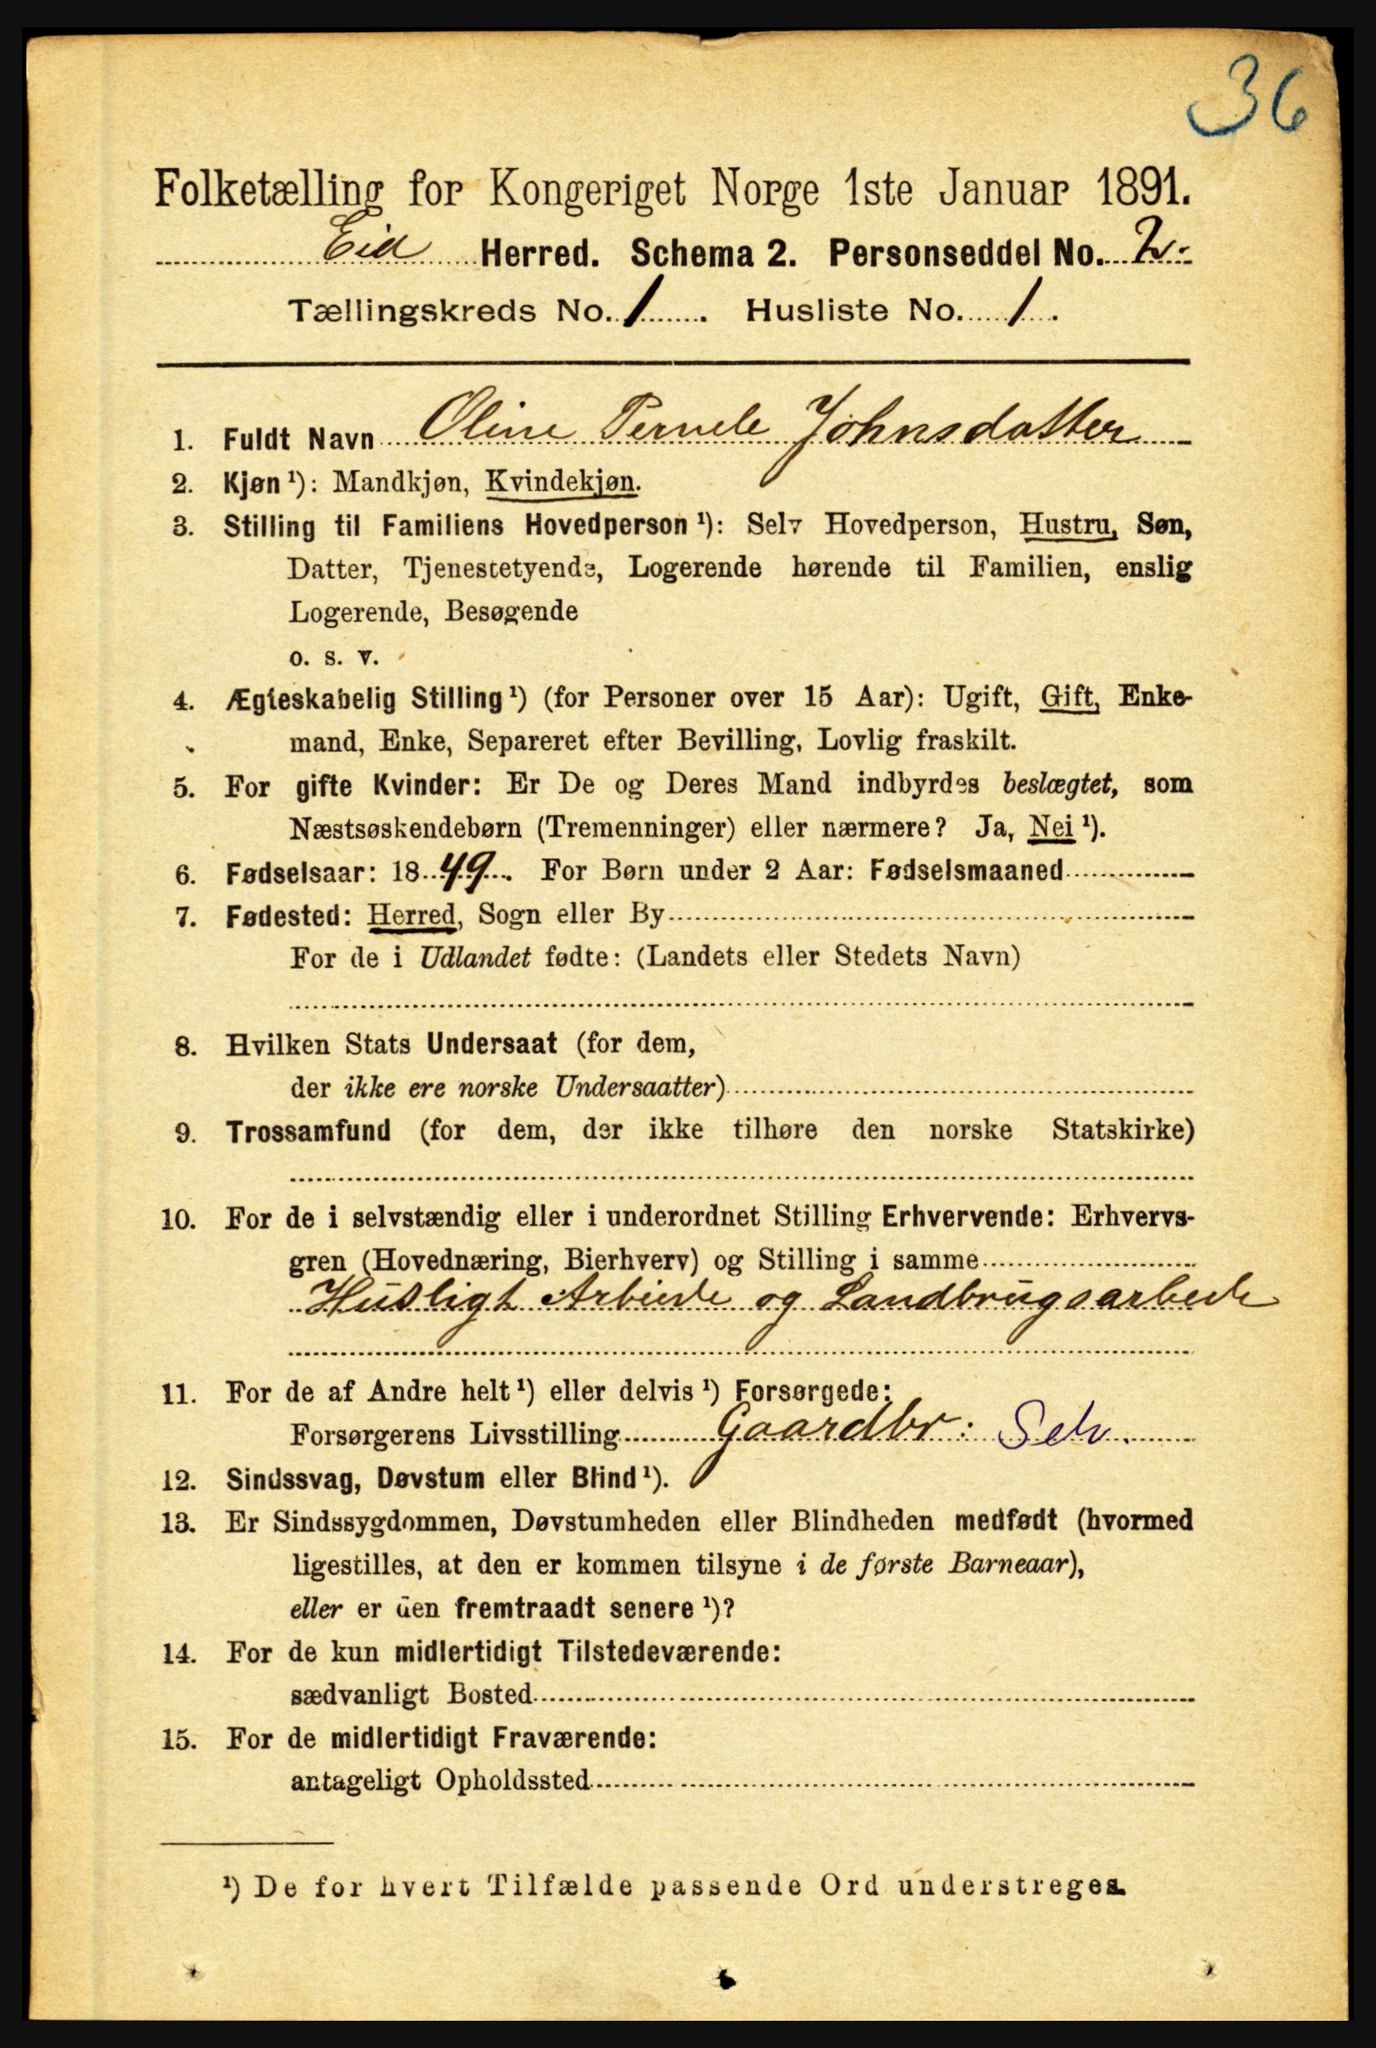 36
Folketælling for Kongeriget Norge 1ste Januar 1891.
Eid Herred. Schema 2. Personseddel No. 2.
Tællingskreds No. 1. Husliste No. 1.
1. Fuldt Navn Oline Pernele Johnsdatter
2. Kjøn ¹): Mandkjøn, Kvindekjøn.
3. Stilling til Familiens Hovedperson ¹): Selv Hovedperson, Hustru, Søn,
Datter, Tjenestetyende, Logerende hørende til Familien, enslig
Logerende, Besøgende
o. s. v.
4. Ægteskabelig Stilling ¹) (for Personer over 15 Aar): Ugift, Gift, Enke-
mand, Enke, Separeret efter Bevilling, Lovlig fraskilt.
5. For gifte Kvinder: Er De og Deres Mand indbyrdes beslægtet, som
Næstsøskendebørn (Tremenninger) eller nærmere? Ja, Nei ¹).
6. Fødselsaar: 1849. For Børn under 2 Aar: Fødselsmaaned
7. Fødested: Herred, Sogn eller By
For de i Udlandet fødte: (Landets eller Stedets Navn)
8. Hvilken Stats Undersaat (for dem,
der ikke ere norske Undersaatter)
9. Trossamfund (for dem, der ikke tilhøre den norske Statskirke)
10. For de i selvstændig eller i underordnet Stilling Erhvervende: Erhvervs-
gren (Hovednæring, Bierhverv) og Stilling i samme
Husligt Arbeide og Landbrugsarbeide
11. For de af Andre helt ¹) eller delvis ¹) Forsørgede:
Forsørgerens Livsstilling Gaardbr: Selv.
12. Sindssvag, Døvstum eller Blind ¹).
13. Er Sindssygdommen, Døvstumheden eller Blindheden medfødt (hvormed
ligestilles, at den er kommen tilsyne i de første Barneaar),
eller er den fremtraadt senere ¹)?
14. For de kun midlertidigt Tilstedeværende:
sædvanligt Bosted
15. For de midlertidigt Fraværende:
antageligt Opholdssted
¹) De for hvert Tilfælde passende Ord understreges.